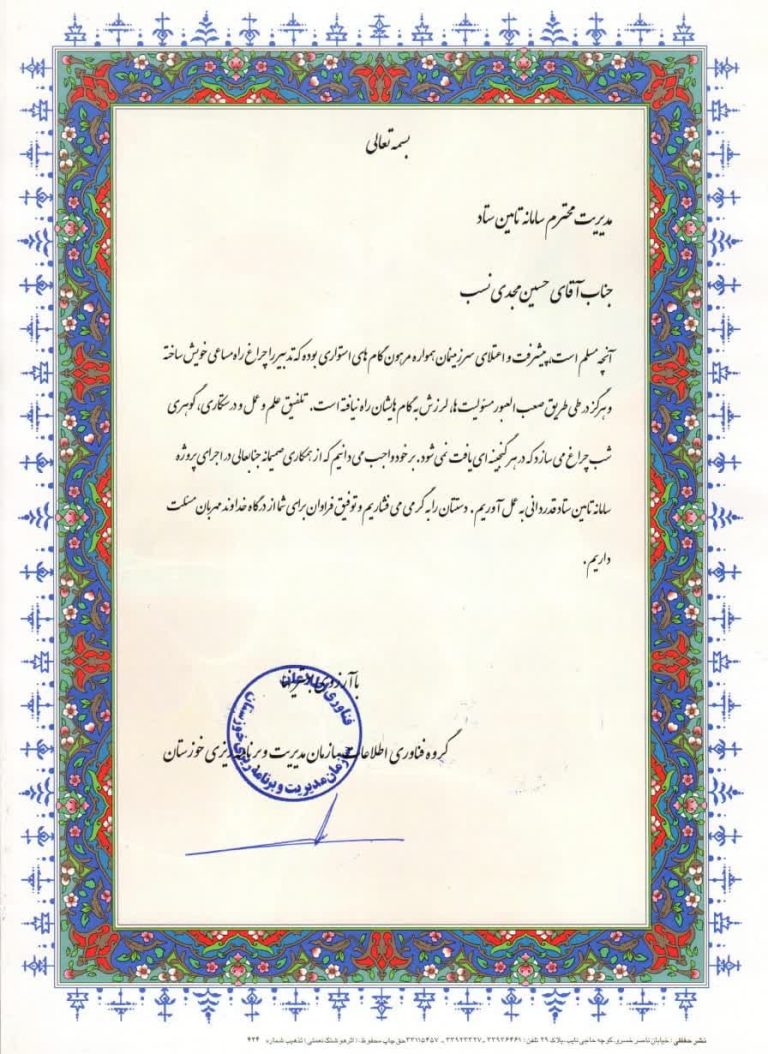 بسمه تعالی
مدیریت محترم سامانه تامین ستاد
جناب آقای حسین مجدی نسب
آنچه مسلم است، پیشرفت و اعتلای سرزمینمان همواره مرهون گام های استواری بوده که تدبیر را چراغ راه مساعی خویش ساخته
و هرگز در طی طریق صعب العبور مسئولیت ها، لرزش به گام هایشان راه نیافته است. تلفیق علم و عمل و درستکاری، گوهری
شب چراغ می سازد که در هر گنجینه ای یافت نمی شود. بر خود واجب می دانیم که از همکاری صمیمانه جنابعالی در اجرای پروژه
سامانه تامین ستاد قدردانی به عمل آوریم. دستتان را به گرمی می فشاریم و توفیق فراوان برای شما از درگاه خداوند مهربان مسئلت
داریم.
با آرزوی
گروه فناوری اطلاعات سازمان مدیریت و برنامه ریزی خوزستان
فناوری اطلاعات
سازمان مدیریت و برنامه ریزی خوزستان
نشر حقیقی : خیابان ناصر خسرو، کوچه حاجی نایب، پلاک ۲۹ تلفن : ۳۳۹۲۶۴۶۱ - ۳۳۹۲۳۳۲۷ - ۳۳۱۱۵۴۵۷ حق چاپ محفوظ، ( اثر هوشنگ نعمتی ) تذهیب شماره ۴۲۴